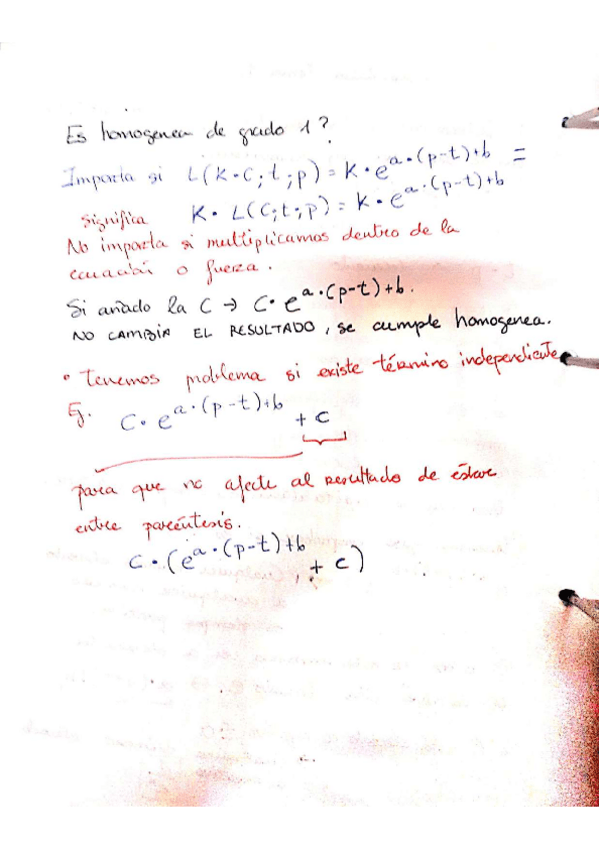 Es homogenea de grado 1?
Importa si L(K·C;t;p) = K·e^a·(p-t)+b =
significa K·L(C;t;p) = K·e^a·(p-t)+b
No importa si multiplicamos dentro de la
ecuación o fuera.
Si añado la C → C·e^a·(p-t)+b.
NO CAMBIA EL RESULTADO, se cumple homogenea.
• Tenemos problema si existe término independiente
Ej. C·e^a·(p-t)+b + c
para que no afecte al resultado de estar
entre paréntesis.
C·(e^a·(p-t)+b + c)